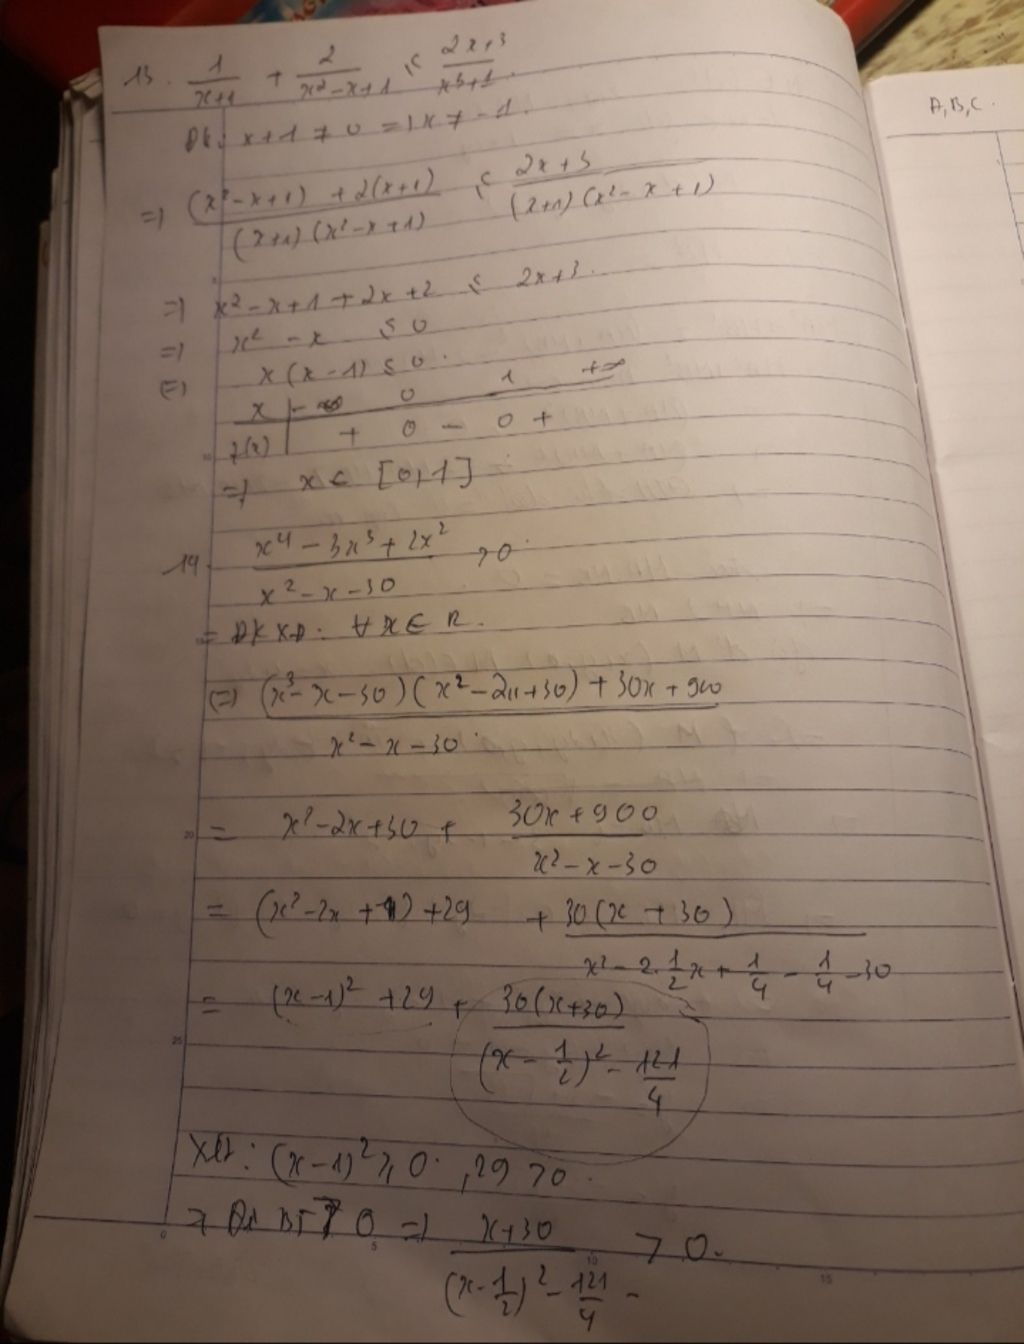 13. 1/(x+1) + 2/(x² - x + 1) ≤ (2x+3)/(x³+1)
Đk: x + 1 ≠ 0 => x ≠ -1.
=> ((x² - x + 1) + 2(x+1))/((x+1)(x² - x + 1)) ≤ (2x + 3)/((x+1)(x² - x + 1))
=> x² - x + 1 + 2x + 2 ≤ 2x + 3.
=> x² - x ≤ 0
(=) x(x - 1) ≤ 0.
x | -∞ 0 1 +∞
f(x) | + 0 - 0 +
=> x ∈ [0,1]
14. (x⁴ - 3x³ + 2x²)/(x² - x - 30) > 0.
= ĐKXĐ: ∀ x ∈ R.
(=) ((x³ - x - 30)(x² - 2x + 30) + 30x + 900)/(x² - x - 30)
= x² - 2x + 30 + (30x + 900)/(x² - x - 30)
= (x² - 2x + 1) + 29 + 30(x + 30)/(x² - 2.1/2x + 1/4 - 1/4 - 30)
= (x - 1)² + 29 + 30(x+30)/((x - 1/2)² - 121/4)
Xét: (x - 1)² ≥ 0. , 29 > 0.
BT > 0 => (x+30)/((x - 1/2)² - 121/4) > 0.
A, B, C.